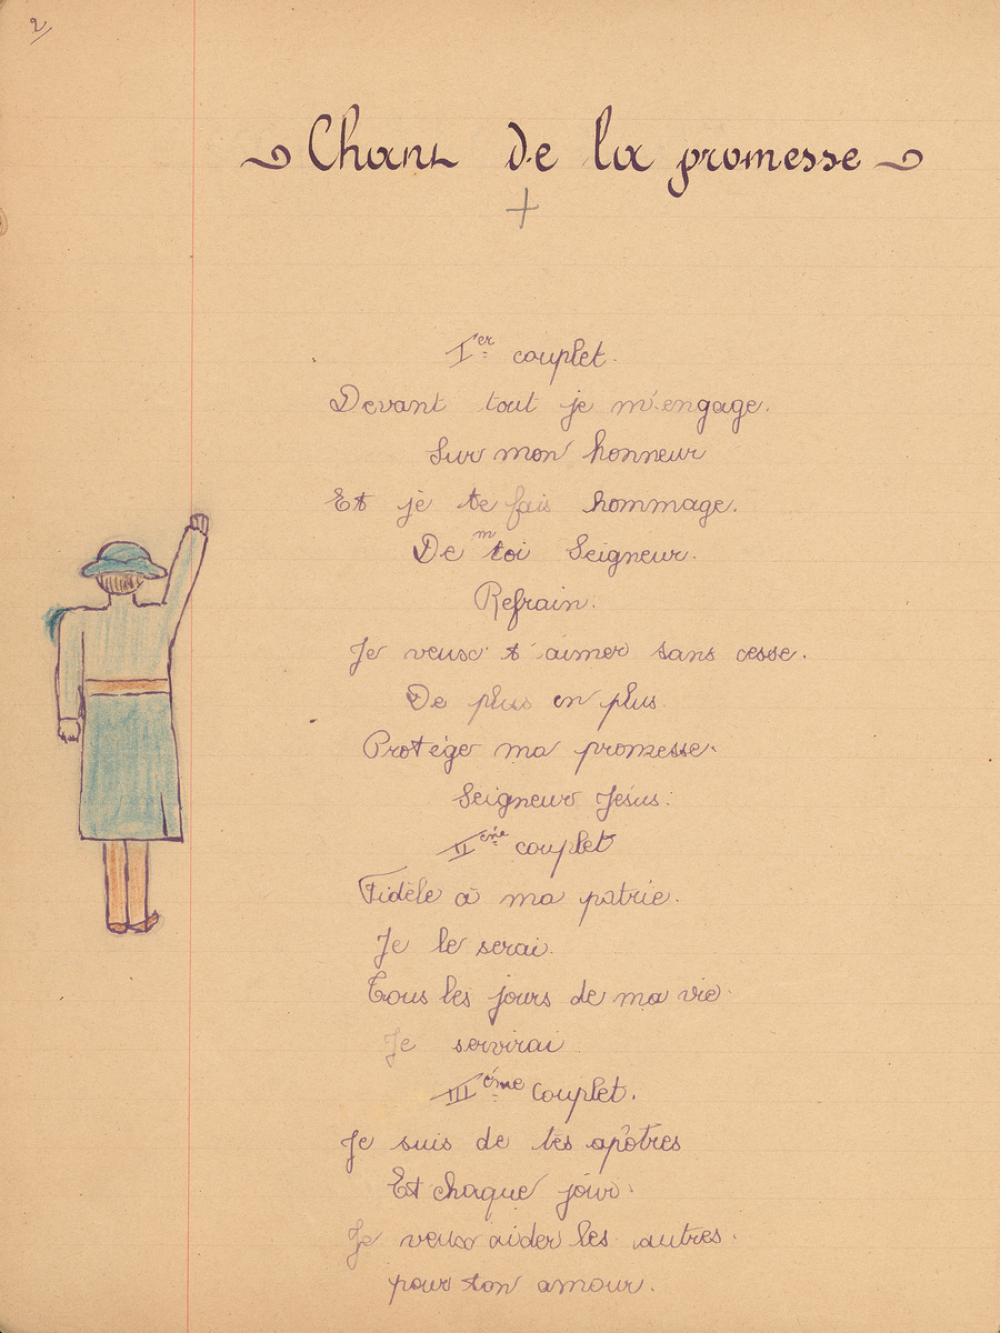 2/
Chant de la promesse
+
Ier couplet.
Devant tout je m'engage.
Sur mon honneur
Et je te fais hommage.
De m toi Seigneur.
Refrain.
Je veux t'aimer sans cesse.
De plus en plus
Protège ma promesse.
Seigneur Jésus.
IIème couplet
Fidèle à ma patrie.
Je le serai.
Tous les jours de ma vie
Je servirai
IIIème couplet.
Je suis de tes apôtres
Et chaque jour.
Je veux aider les autres.
pour ton amour.